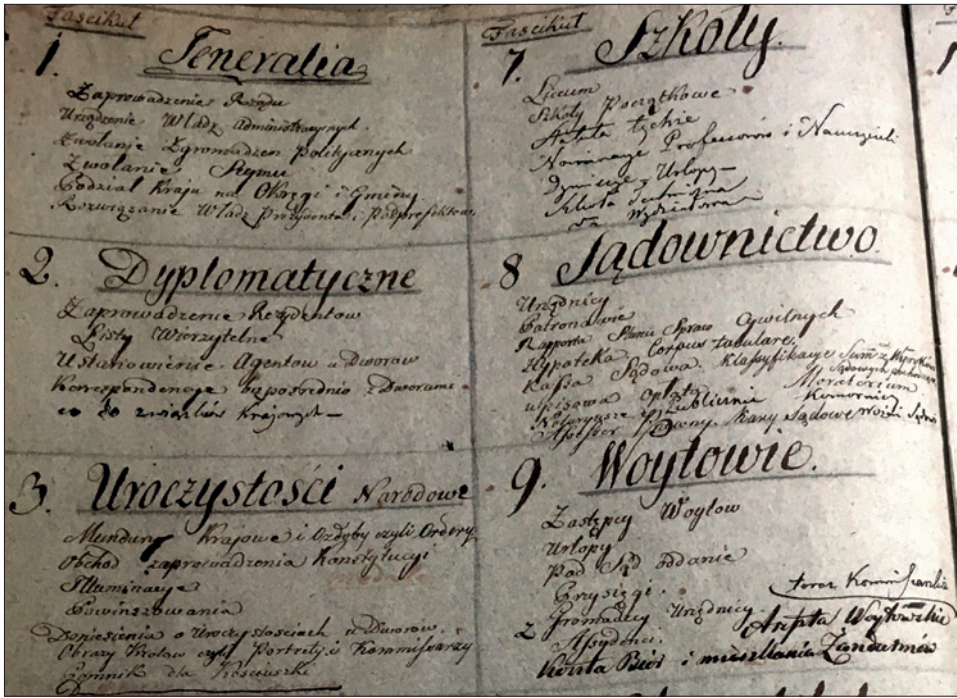 Fascikuł
1. Generalia
Zaprowadzenie Rządu
Urządzenie Władz Administracyjnych.
Zwołanie Zgromadzeń Politycznych
Zwołanie Seymu
Podział Kraju na Okręgi i Gminy.
Rozwiązanie Władz Prezydenta i Podprefektow
2. Dyplomatyczne
Zaprowadzenie Rezydentow
Listy Wierzytelne
Ustanowienie Agentow u Dworow
Korrespondencye bezpośrednio z Dworami
co do związków krajowych
3. Uroczystości Narodowe
Mundury Krajowe i Ozdoby czyli Ordery
Obchod zaprowadzenia Konstytucyi
Illuminacye
Powinszowania
Doniesienia o Uroczystościach u Dworow.
Obrazy Krolow czyli Portrety i Kommissarzy
Pomnik dla Kościuszki
Fascikuł
7. Szkoły.
Liceum
Szkoły Początkowe
Nominacye Profesorów i Nauczycieli
Urlopy
8 Sądownictwo.
Urzędnicy
Patronowie
Rapporta Stanu Spraw Cywilnych
Hypoteka. Corpus tabulare.
Kassa Sądowa. Klassyfikacye Summ
wpisowa opłata Moratorium
Notaryusze publiczni Komornicy
Assessor Kary Sądowe Woźni
9. Woytowie.
Zastępcy Woytow
Urlopy
Pod Sąd oddanie
Przysięgi.
Gromadzcy Urzędnicy
Woytowskie
i mieszkania Żandarmów